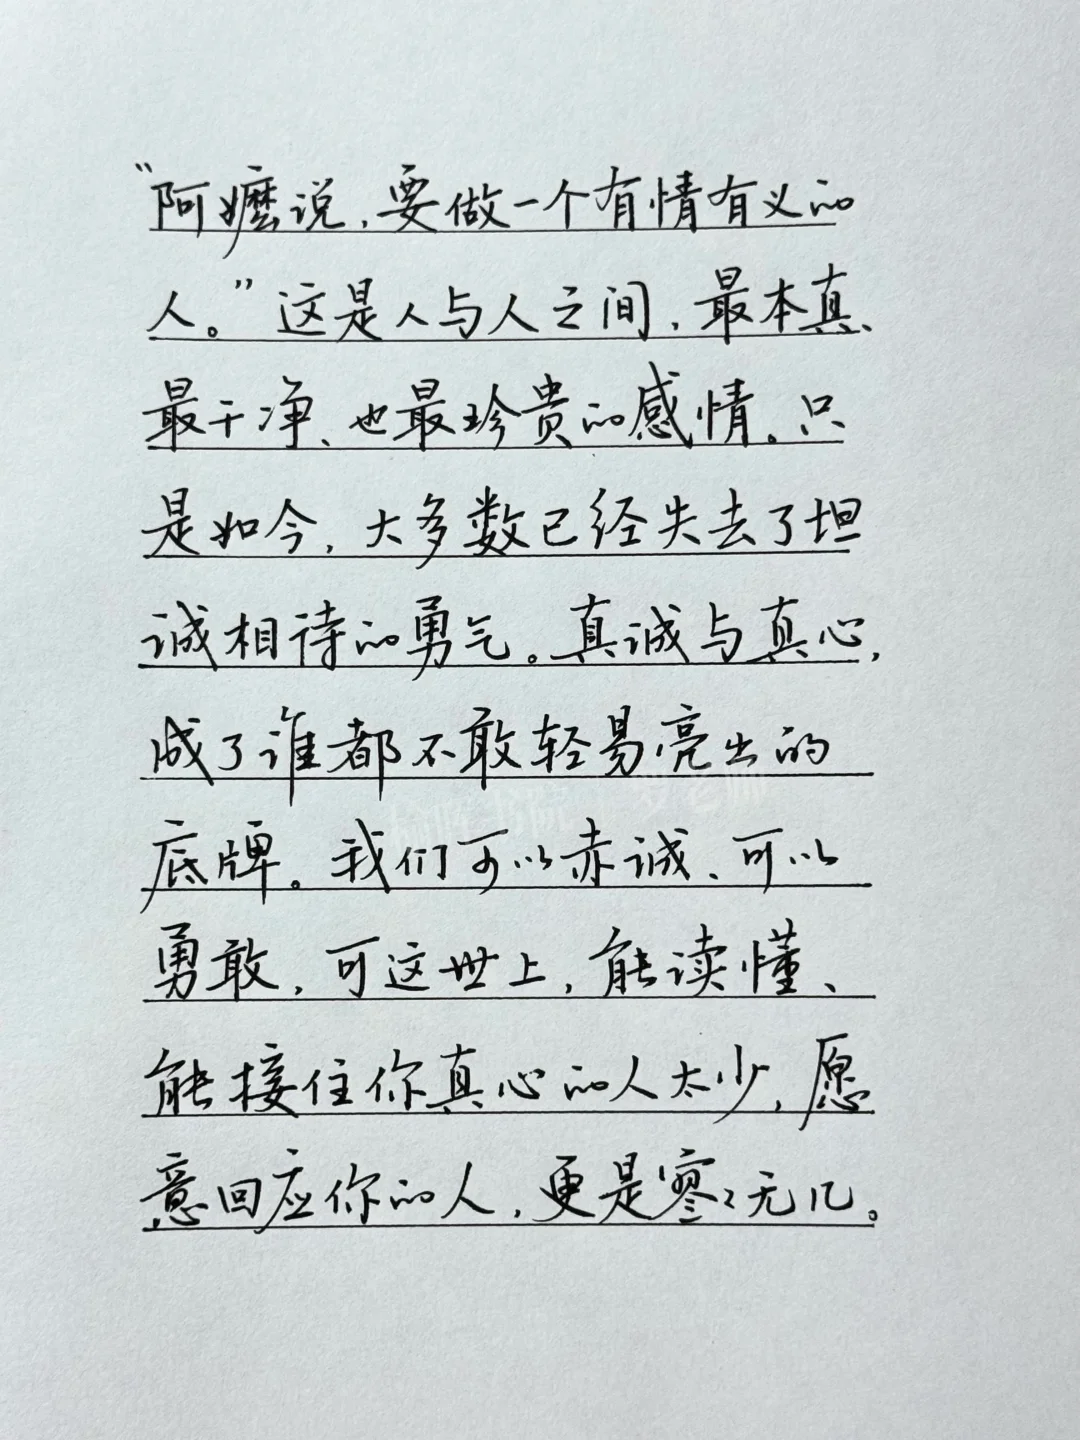 “阿嬷说，要做一个有情有义的
人。”这是人与人之间，最本真、
最干净、也最珍贵的感情。只
是如今，大多数已经失去了坦
诚相待的勇气。真诚与真心，
成了谁都不敢轻易亮出的
底牌。我们可以赤诚、可以
勇敢，可这世上，能读懂、
能接住你真心的人太少，愿
意回应你的人，更是寥々无几。